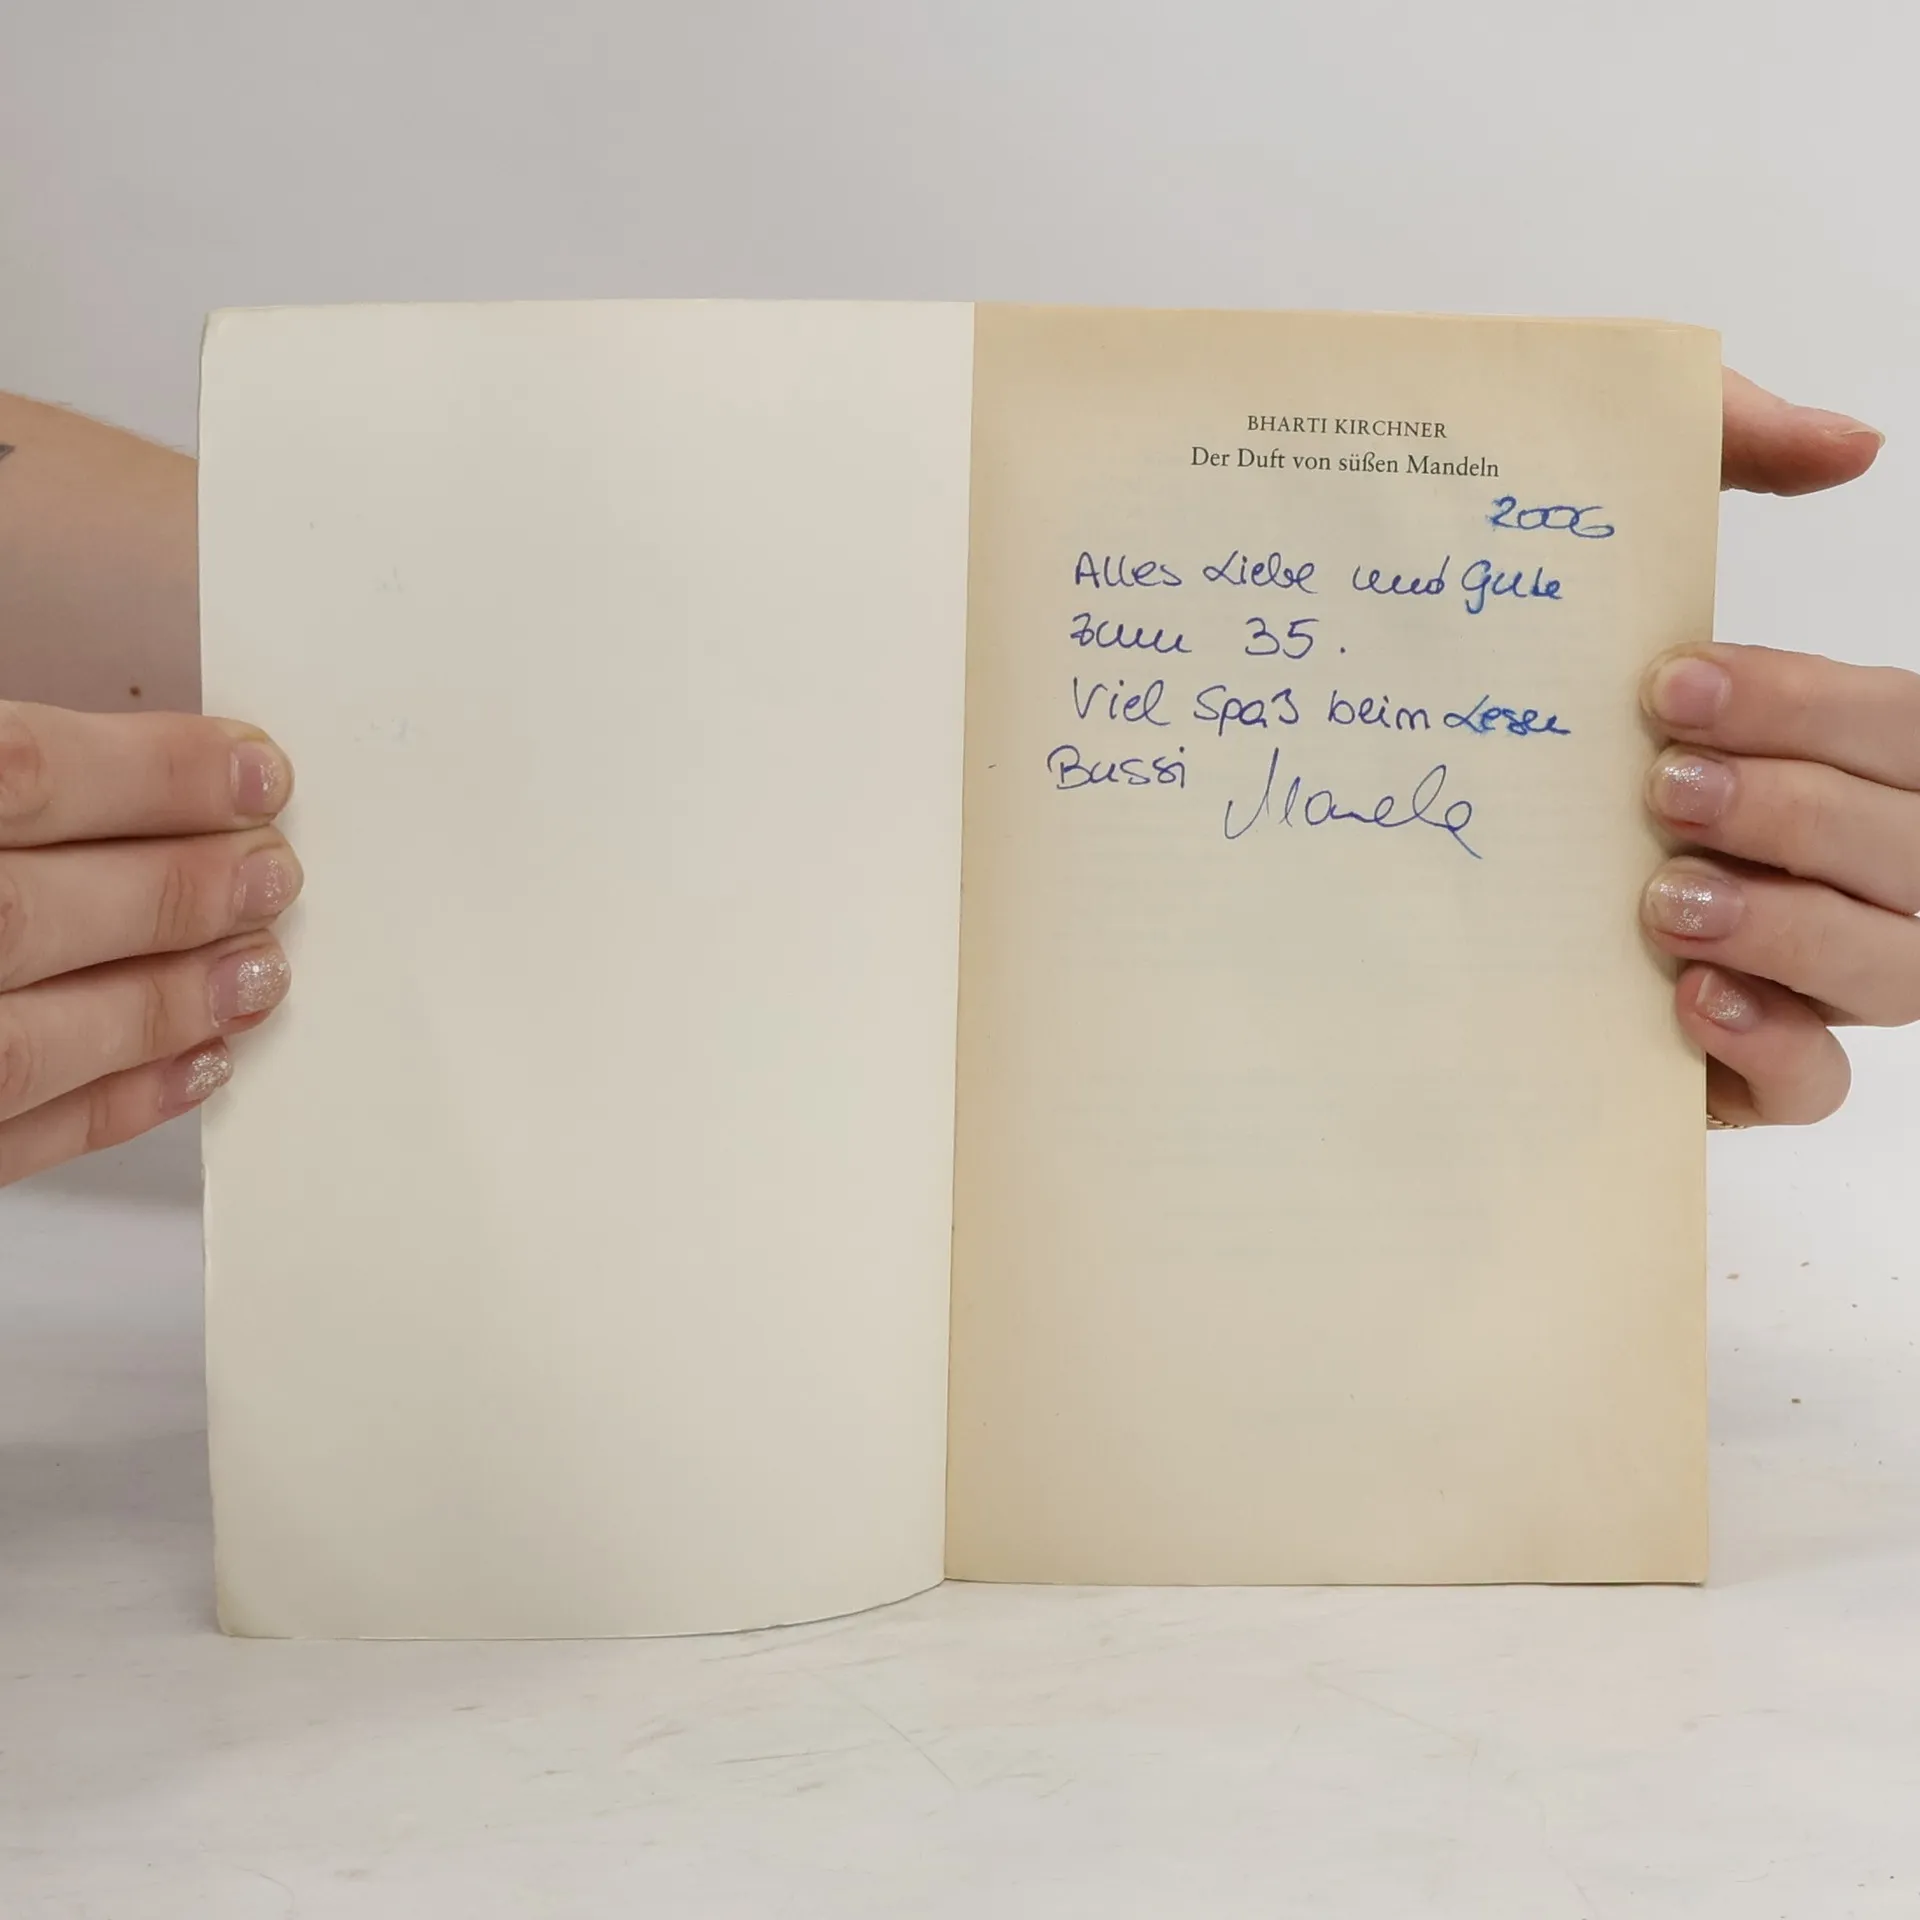 BHARTI KIRCHNER
Der Duft von süßen Mandeln
2006
Alles Liebe und Gute
zum 35.
Viel Spaß beim Lesen
Bussi Manuela